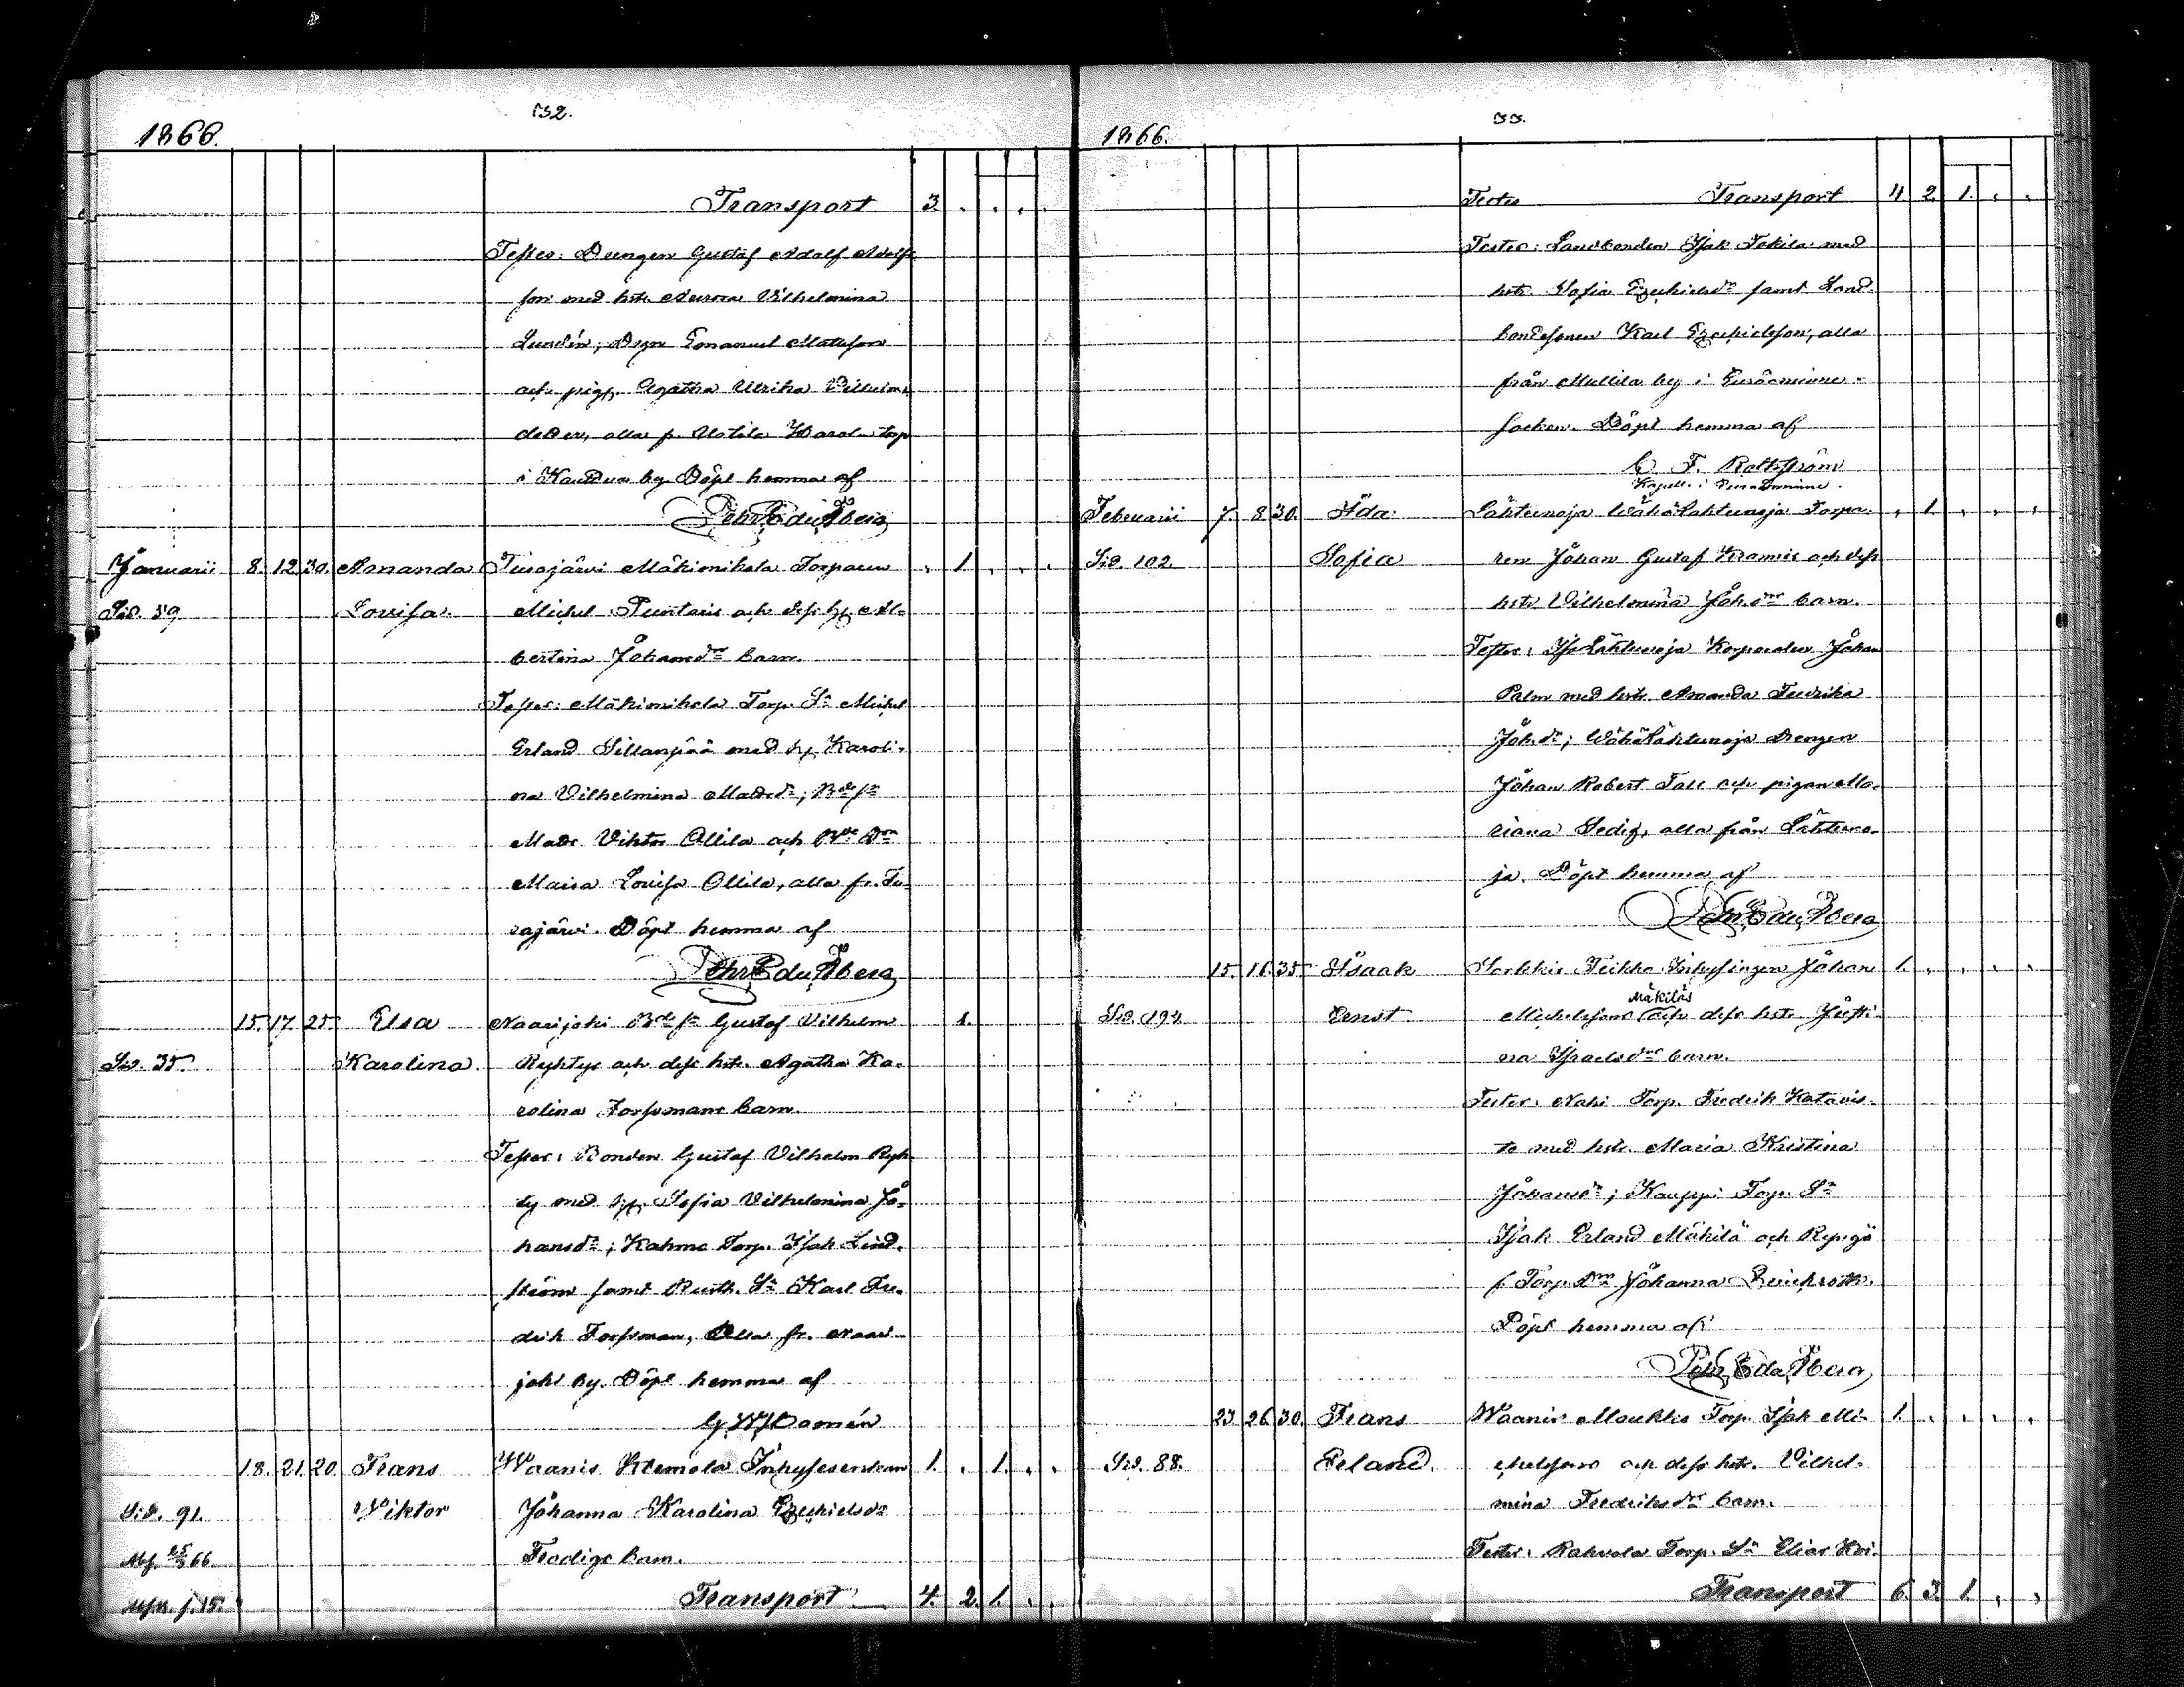 132.
1866.
Transport 3. . . . .
Testes: Drengen Gustaf Adolf Adolfs
son med hstr. Aurora Vilhelmina
Lundén; Dgn Emanuel Matsson
och pig. Agatha Ulrika Vilhelms
doter, alla fr. Uotila torp
i Kauttua by Döpt hemma af
Pehr Edu. Åberg
Januarii 8. 12. 30. Amanda Turajärvi Mäkimikola Torparen . 1. . . .
Sid. 59 Lovisa Michel Puntaris och dess h. Al-
bertina Johansdrs barn.
Testes: Mäkimikola Torp. Sn Michel
Erland Sillanpää med h. Karoli-
na Vilhelmina Matsdr; Bdesn
Mats Viktor Ollila och Bde Drn
Maria Lovisa Ollila, alla fr. Tu-
rajärvi. Döpt hemma af
Pehr Edu. Åberg
15. 17. 25. Elsa Naarijoki Bdesn Gustaf Vilhelm 1.
Sid. 35 Karolina. Ryhtys och dess hstr. Agatha Ka-
rolina Forssmans barn.
Testes: Bonden Gustaf Vilhelm Ryh-
ty med h. Sofia Vilhelmina Jo-
hansdr; Kahme Torp. Isak Lind-
ström samt Rusth. Sn Karl Fre-
drik Forssman, Alla fr. Naari-
joki by. Döpt hemma af
G. W. Homén
18. 21. 20. Frans Waanis Klemola Inhyseserskan 1. . 1. . .
Sid. 91. Viktor Johanna Karolina Ezechielsdr
66 Frediges barn.
Transport 4. 2. 1. . .
33.
1866.
Testes Transport 4 2. 1. . .
Testes: Landbonden Isak Tokila med
hstr. Sofia Ezechielsdr samt Land-
bondesonen Karl Ezechielsson, alla
från Mullila by i Euraåminne
socken. Döpt hemma af
C. F. Rothström
Kapell. i Euraåminne.
Februarii 7. 8. 30. Ida Lähteenoja WähäLähteenoja Torpa- . 1. . . .
Sid. 102. Sofia ren Johan Gustaf Kramis och dess
hstr Vilhelmina Joh.drs barn.
Testes: IsoLähteenoja Korporalen Johan
Palm med hstr. Amanda Fredrika
Joh.dr; WähäLähteenoja Drengen
Johan Robert Fall och pigan Ma-
riana Sedig, alla från Lähteno-
ja. Döpt hemma af
Pehr Edu. Åberg
15. 16. 35. Isaak Sorkkis Peikko Inhysingen Johan 1. . . . .
Mäkiläs
Sid. 194. Ernst Michelssons och dess hstr. Justi-
na Israelsdrs barn.
Testes: Nahi Torp. Fredrik Katavis-
to med hstr. Maria Kristina
Johansdr; Kauppi Torp. Sn
Isak Erland Mäkilä och
Torp. Drn Johanna
Döpt hemma af
Pehr Edu. Åberg
23. 26. 30. Frans Waanis Maukkis Torp. Isak Mi- 1. . . . .
Sid. 88. Erland. chelssons och dess hstr. Vilhel-
mina Fredriksdrs barn.
Testes: Rahvola Torp. Sn Elias Koi-
Transport 6. 3. 1. . .